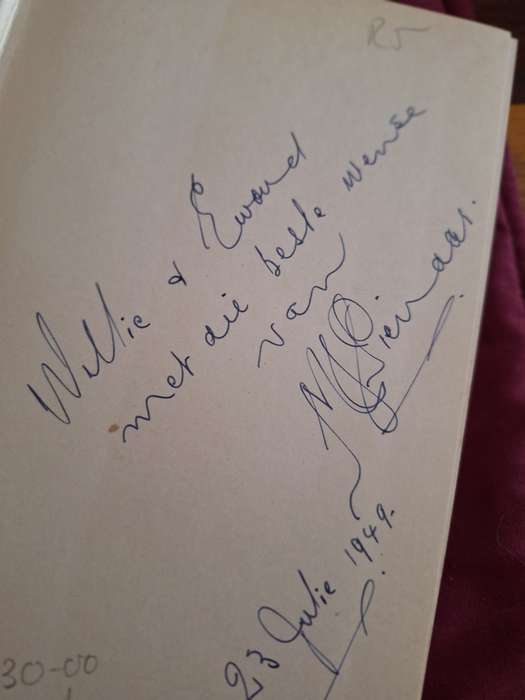 R5
Willie & Eward
met die beste wense
van
Pienaar.
23 Julie 1949.
30-00